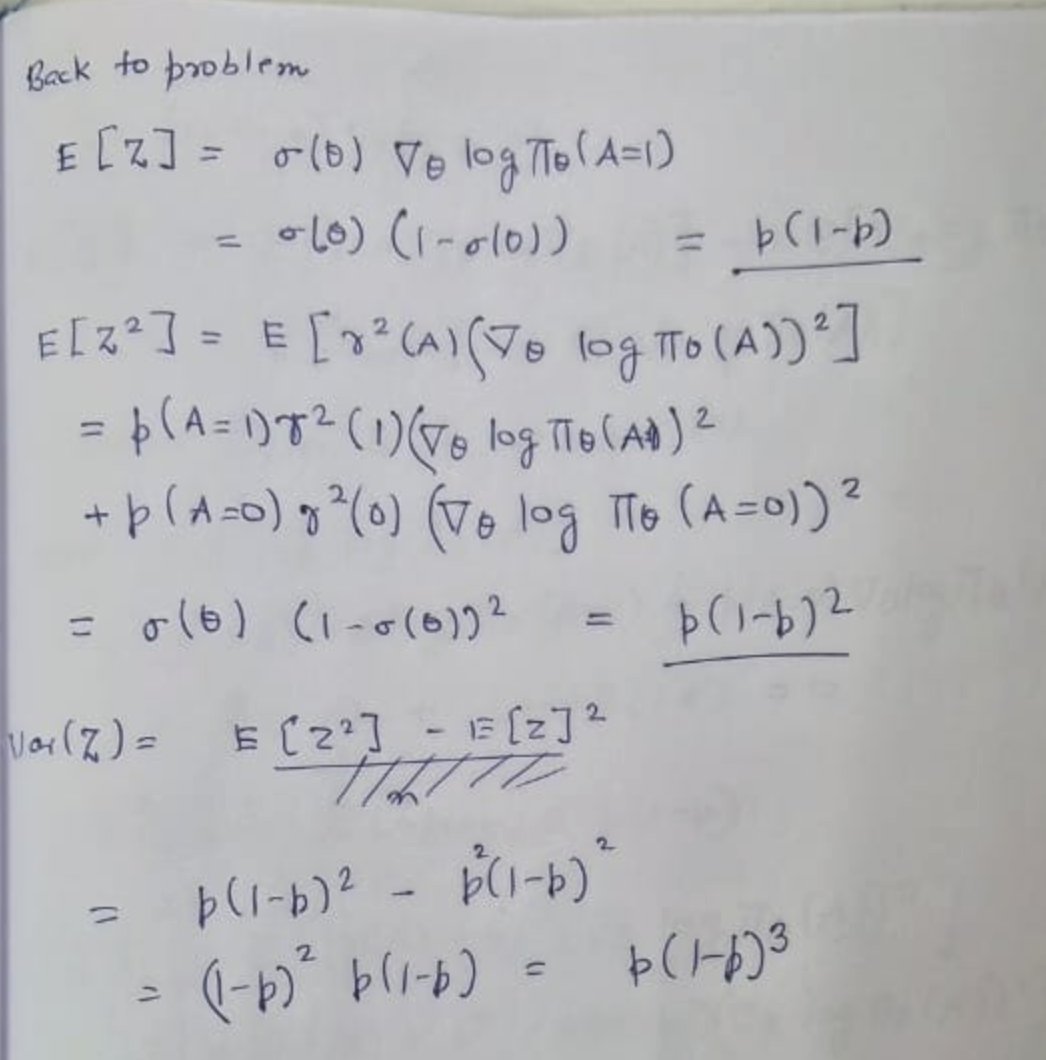 Back to problem
E[Z] = σ(θ) ∇θ log πθ(A=1)
= σ(θ) (1-σ(θ)) = p(1-p)
E[Z²] = E[r²(A)(∇θ log πθ(A))²]
= p(A=1)r²(1)(∇θ log πθ(A))²
+ p(A=0) r²(0) (∇θ log πθ(A=0))²
= σ(θ) (1-σ(θ))² = p(1-p)²
Var(Z) = E[Z²] - E[Z]²
= p(1-p)² - p²(1-p)²
= (1-p)² p(1-p) = p(1-p)³